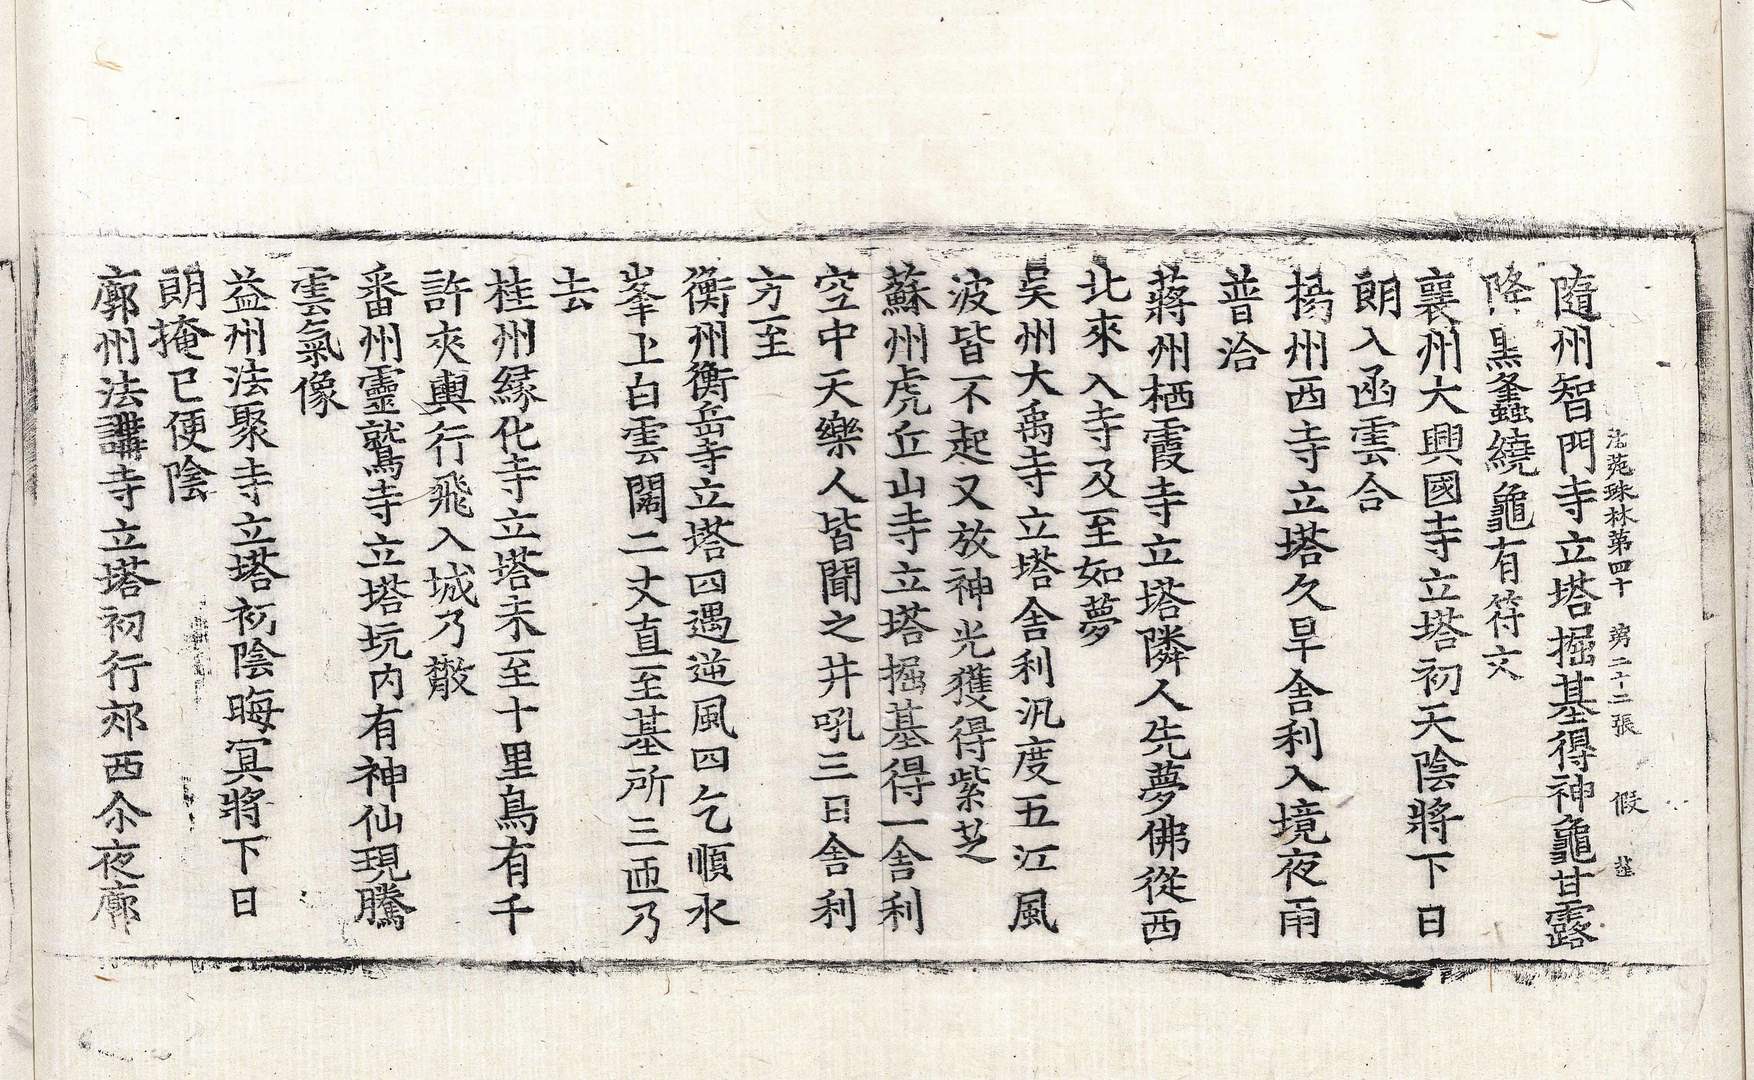 法苑珠林第四十 第二十二張 假
隨州智門寺立塔掘基得神龜甘露
降黑蜂繞龜有符文
襄州大興國寺立塔初天陰將下日
朗入函雲合
揚州西寺立塔久旱舍利入境夜雨
普洽
蔣州栖霞寺立塔隣人先夢佛從西
北來入寺及至如夢
吳州大禹寺立塔舍利汎度五江風
波皆不起又放神光獲得紫芝
蘇州虎丘山寺立塔掘基得一舍利
空中天樂人皆聞之井吼三日舍利
方至
衡州衡岳寺立塔四遇逆風四乞順水
峯上白雲闊二丈直至基所三匝乃
去
桂州緣化寺立塔未至十里鳥有千
許夾輿行飛入城乃散
番州靈鷲寺立塔坑內有神仙現騰
雲氣像
益州法聚寺立塔初陰晦冥將下日
朗掩已便陰
廓州法講寺立塔初行郊西尒夜廓